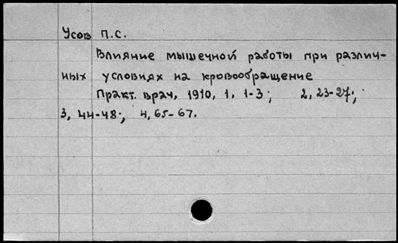 Усов П.С.
Влияние мышечной работы при различ-
ных условиях на кровообращение
Практ. врач, 1910, 1, 1-3; 2, 23-27;
3, 44-48; 4, 65-67.